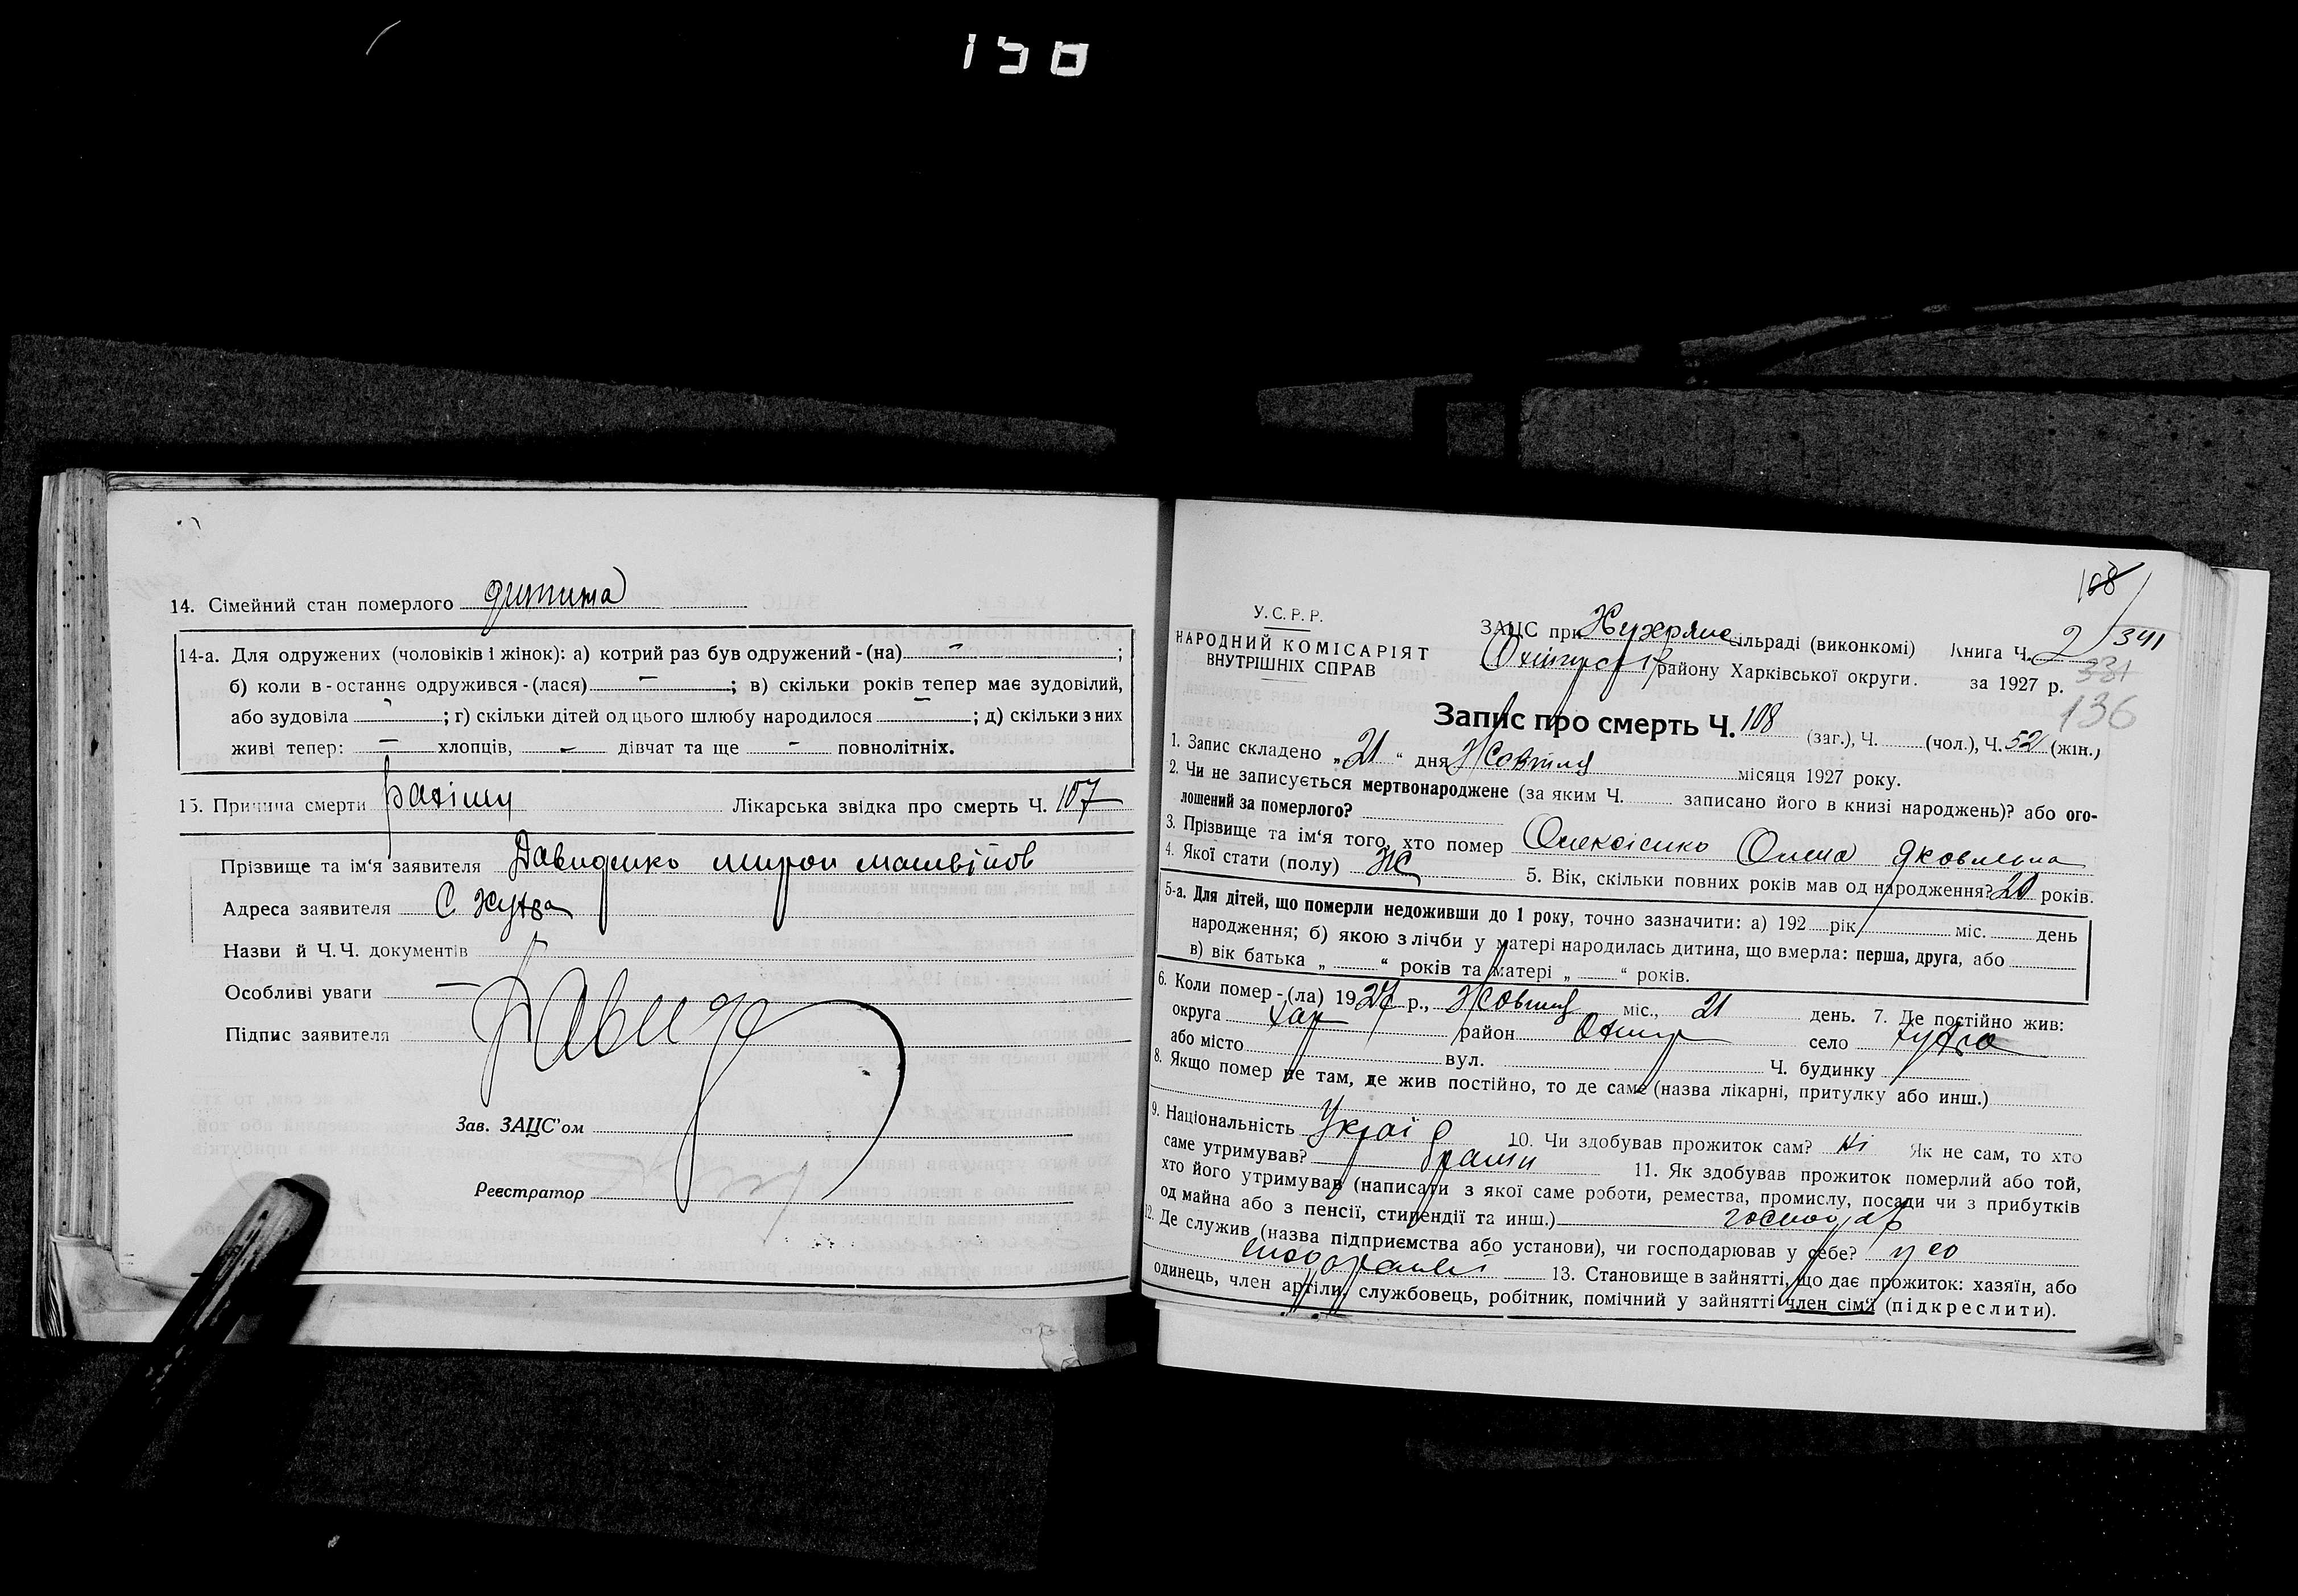 136
14. Сімейний стан померлого дитина
14-а. Для одружених (чоловіків і жінок): а) котрий раз був одружений - (на) - ;
б) коли в-останнє одружився - (лася) - ; в) скільки років тепер має зудовілий,
або зудовіла - ; г) скільки дітей од цього шлюбу народилося - ; д) скільки з них
живі тепер: - хлопців, - дівчат та ще - повнолітніх.
15. Причина смерти Лікарська звідка про смерть Ч. 107
Прізвище та ім'я заявителя Давиденко мирон матвійов
Адреса заявителя С
Назви й Ч.Ч. документів
Особливі уваги -
Підпис заявителя Давиде
Зав. ЗАЦС'ом
Реєстратор
108
У.С.Р.Р.
НАРОДНИЙ КОМІСАРІЯТ
ВНУТРІШНІХ СПРАВ
ЗАЦС при сільраді (виконкомі) Книга Ч. 2 341
району Харківської округи. за 1927 р. 331
136
Запис про смерть Ч. 108 (заг.), Ч. (чол.), Ч. 52 (жін.)
1. Запис складено „21“ дня Жовтня місяця 1927 року.
2. Чи не записується мертвонароджене (за яким Ч. записано його в книзі народжень)? або ого-
лошений за померлого?
3. Прізвище та ім'я того, хто помер Олексієнко Олена Яковлевна
4. Якої стати (полу) Ж 5. Вік, скільки повних років мав од народження? 20 років.
5-а. Для дітей, що померли недоживши до 1 року, точно зазначити: а) 192 рік міс. день
народження; б) якою з лічби у матері народилась дитина, що вмерла: перша, друга, або
в) вік батька „ “ років та матері „ “ років.
6. Коли помер-(ла) 1927 р., Жовтня міс., 21 день. 7. Де постійно жив:
округа Хар район Охтир село
або місто вул. Ч. будинку
8. Якщо помер не там, де жив постійно, то де саме (назва лікарні, притулку або инш.)
9. Національність Украї 10. Чи здобував прожиток сам? Ні Як не сам, то хто
саме утримував? 11. Як здобував прожиток померлий або той,
хто його утримував (написати з якої саме роботи, ремества, промислу, посади чи з прибутків
од майна або з пенсії, стипендії та инш.) господар
12. Де служив (назва підприємства або установи), чи господарював у себе? у со
13. Становище в зайнятті, що дає прожиток: хазяїн, або
одинець, член артіли, службовець, робітник, помічний у зайнятті член сім'ї (підкреслити).